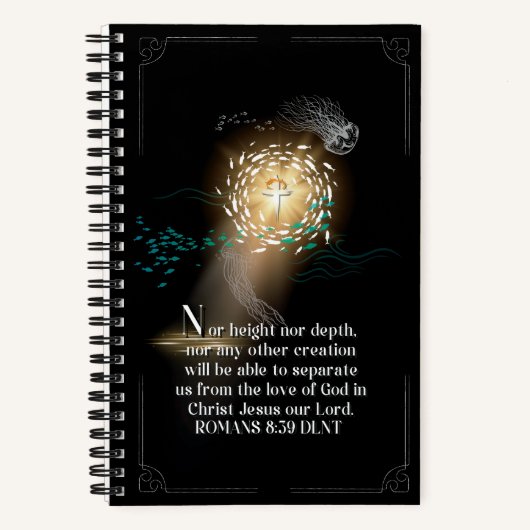 Nor height nor depth,
nor any other creation
will be able to separate
us from the love of God in
Christ Jesus our Lord.
ROMANS 8:39 DLNT